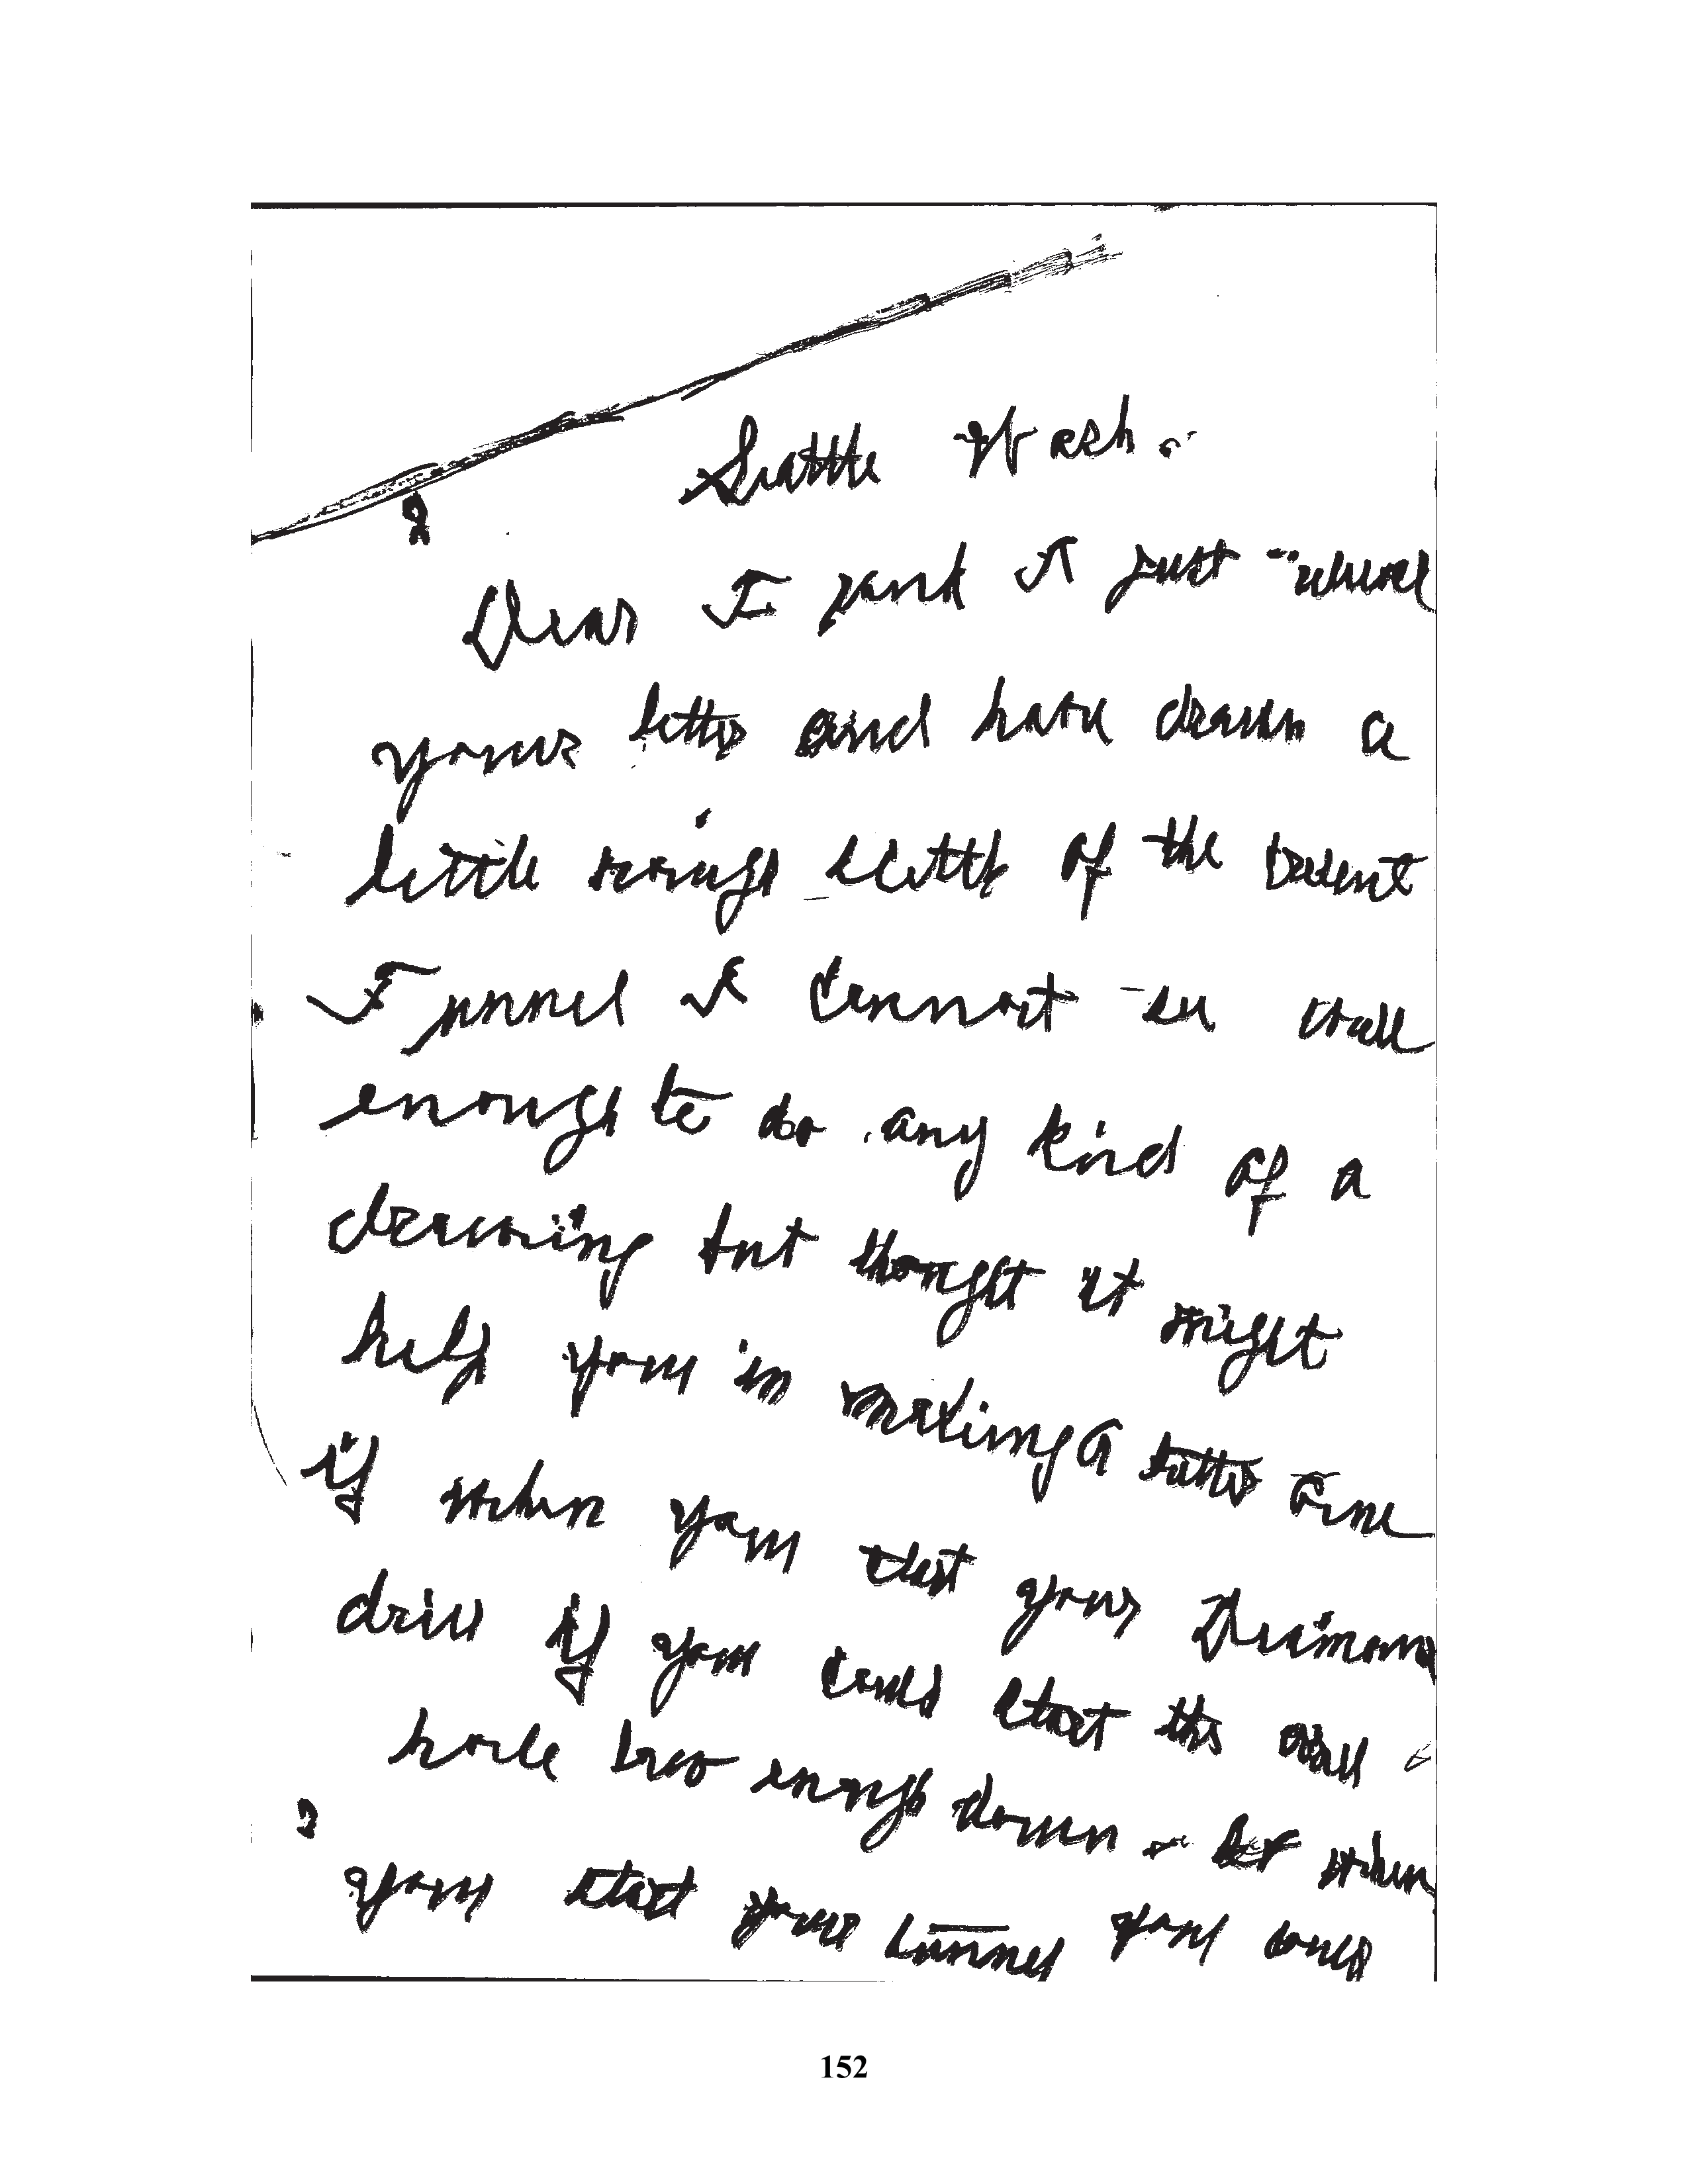 Seattle Wash.
Dear Frank I just
your letter and have drawn a
little rough sketch of the
Tunnel I cannot see well
enough to do any kind of a
drawing but thought it might
help you in making a better one
if when you start your Diamond
drill if you could start the drill
hole low enough down - when
you start your tunnel you could
152